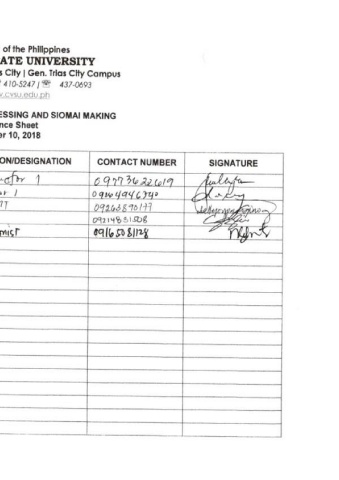 of the Philippines
ATE UNIVERSITY
s City | Gen. Trias City Campus
410-5247 | ☏ 437-0693
.cvsu.edu.ph
ESSING AND SIOMAI MAKING
nce Sheet
er 10, 2018
ON/DESIGNATION CONTACT NUMBER SIGNATURE
ctor 1 09773622619
or 1 09164946740
09263890177
09214831508
mist 09165081128